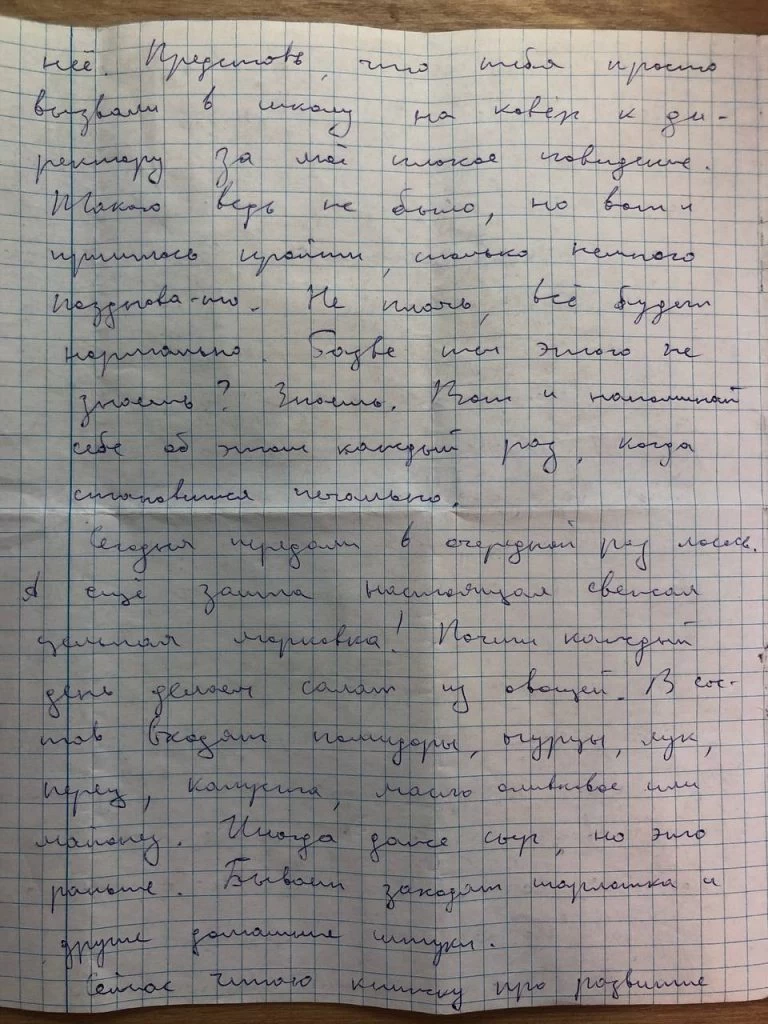 неё. Представь, что тебя просто
вызвали в школу на ковёр к ди-
ректору за моё плохое поведение.
Такого ведь не было, но вот и
пришлось пройти, только немного
поздновато. Не плачь, всё будет
нормально. Разве ты этого не
знаешь? Знаешь. Вот и напоминай
себе об этом каждый раз, когда
становится печально.
Сегодня передали в очередной раз лосось.
А ещё зашла настоящая свежая
цельная морковка! Почти каждый
день делаем салат из овощей. В сос-
тав входят помидоры, огурцы, лук,
перец, капуста, масло оливковое или
майонез. Иногда даже сыр, но это
раньше. Бывает заходят шарлотка и
другие домашние штуки.
Сейчас читаю книжку про развитие